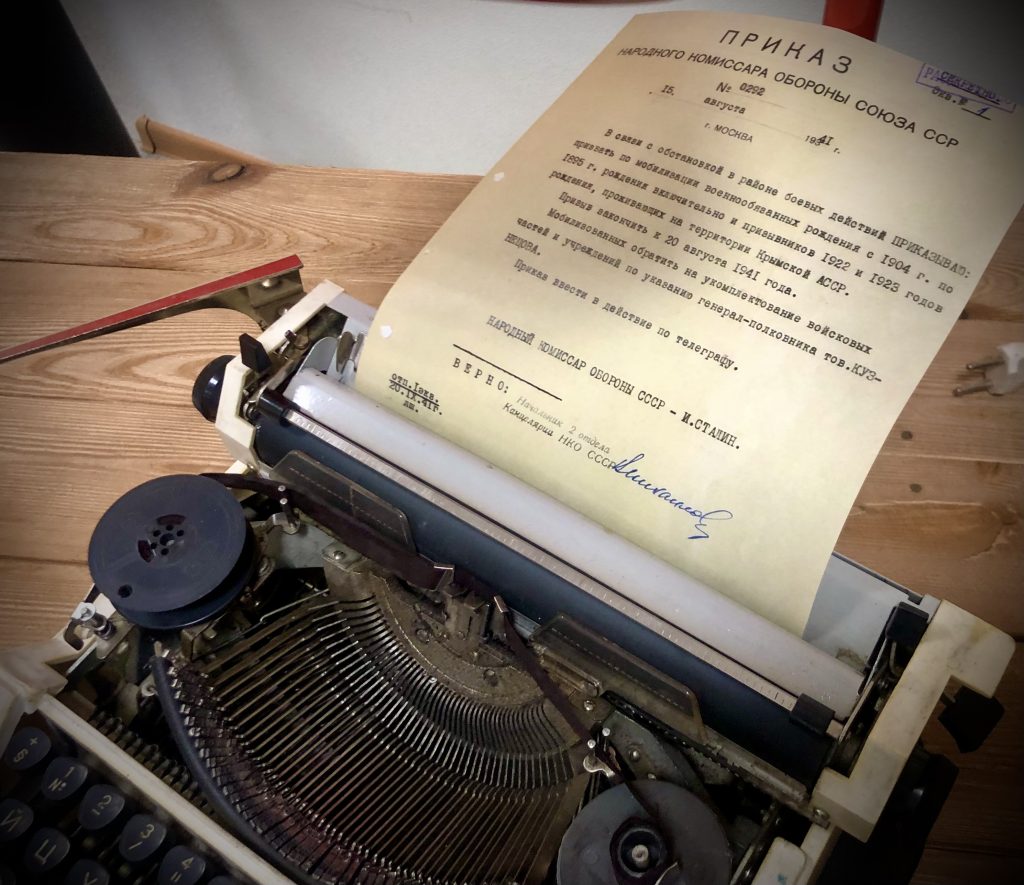 ПРИКАЗ
НАРОДНОГО КОМИССАРА ОБОРОНЫ СОЮЗА ССР
РАССЕКРЕТНО.
Экз.№ 1
№ 0292
15. августа 1941 г.
г. МОСКВА
В связи с обстановкой в районе боевых действий ПРИКАЗЫВАЮ:
призвать по мобилизации военнообязанных рождения с 1904 г. по
1895 г. рождения включительно и призывников 1922 и 1923 годов
рождения, проживающих на территории Крымской АССР.
Призыв закончить к 20 августа 1941 года.
Мобилизованных обратить на укомплектование войсковых
частей и учреждений по указанию генерал-полковника тов.КУЗ-
НЕЦОВА.
Приказ ввести в действие по телеграфу.
НАРОДНЫЙ КОМИССАР ОБОРОНЫ СССР - И.СТАЛИН.
ВЕРНО:
Начальник 2 отдела
Канцелярии НКО СССР
отп.1экз.
20.IX.41г.
лш.
+
1
№
2
3
4
Й
Ц
У